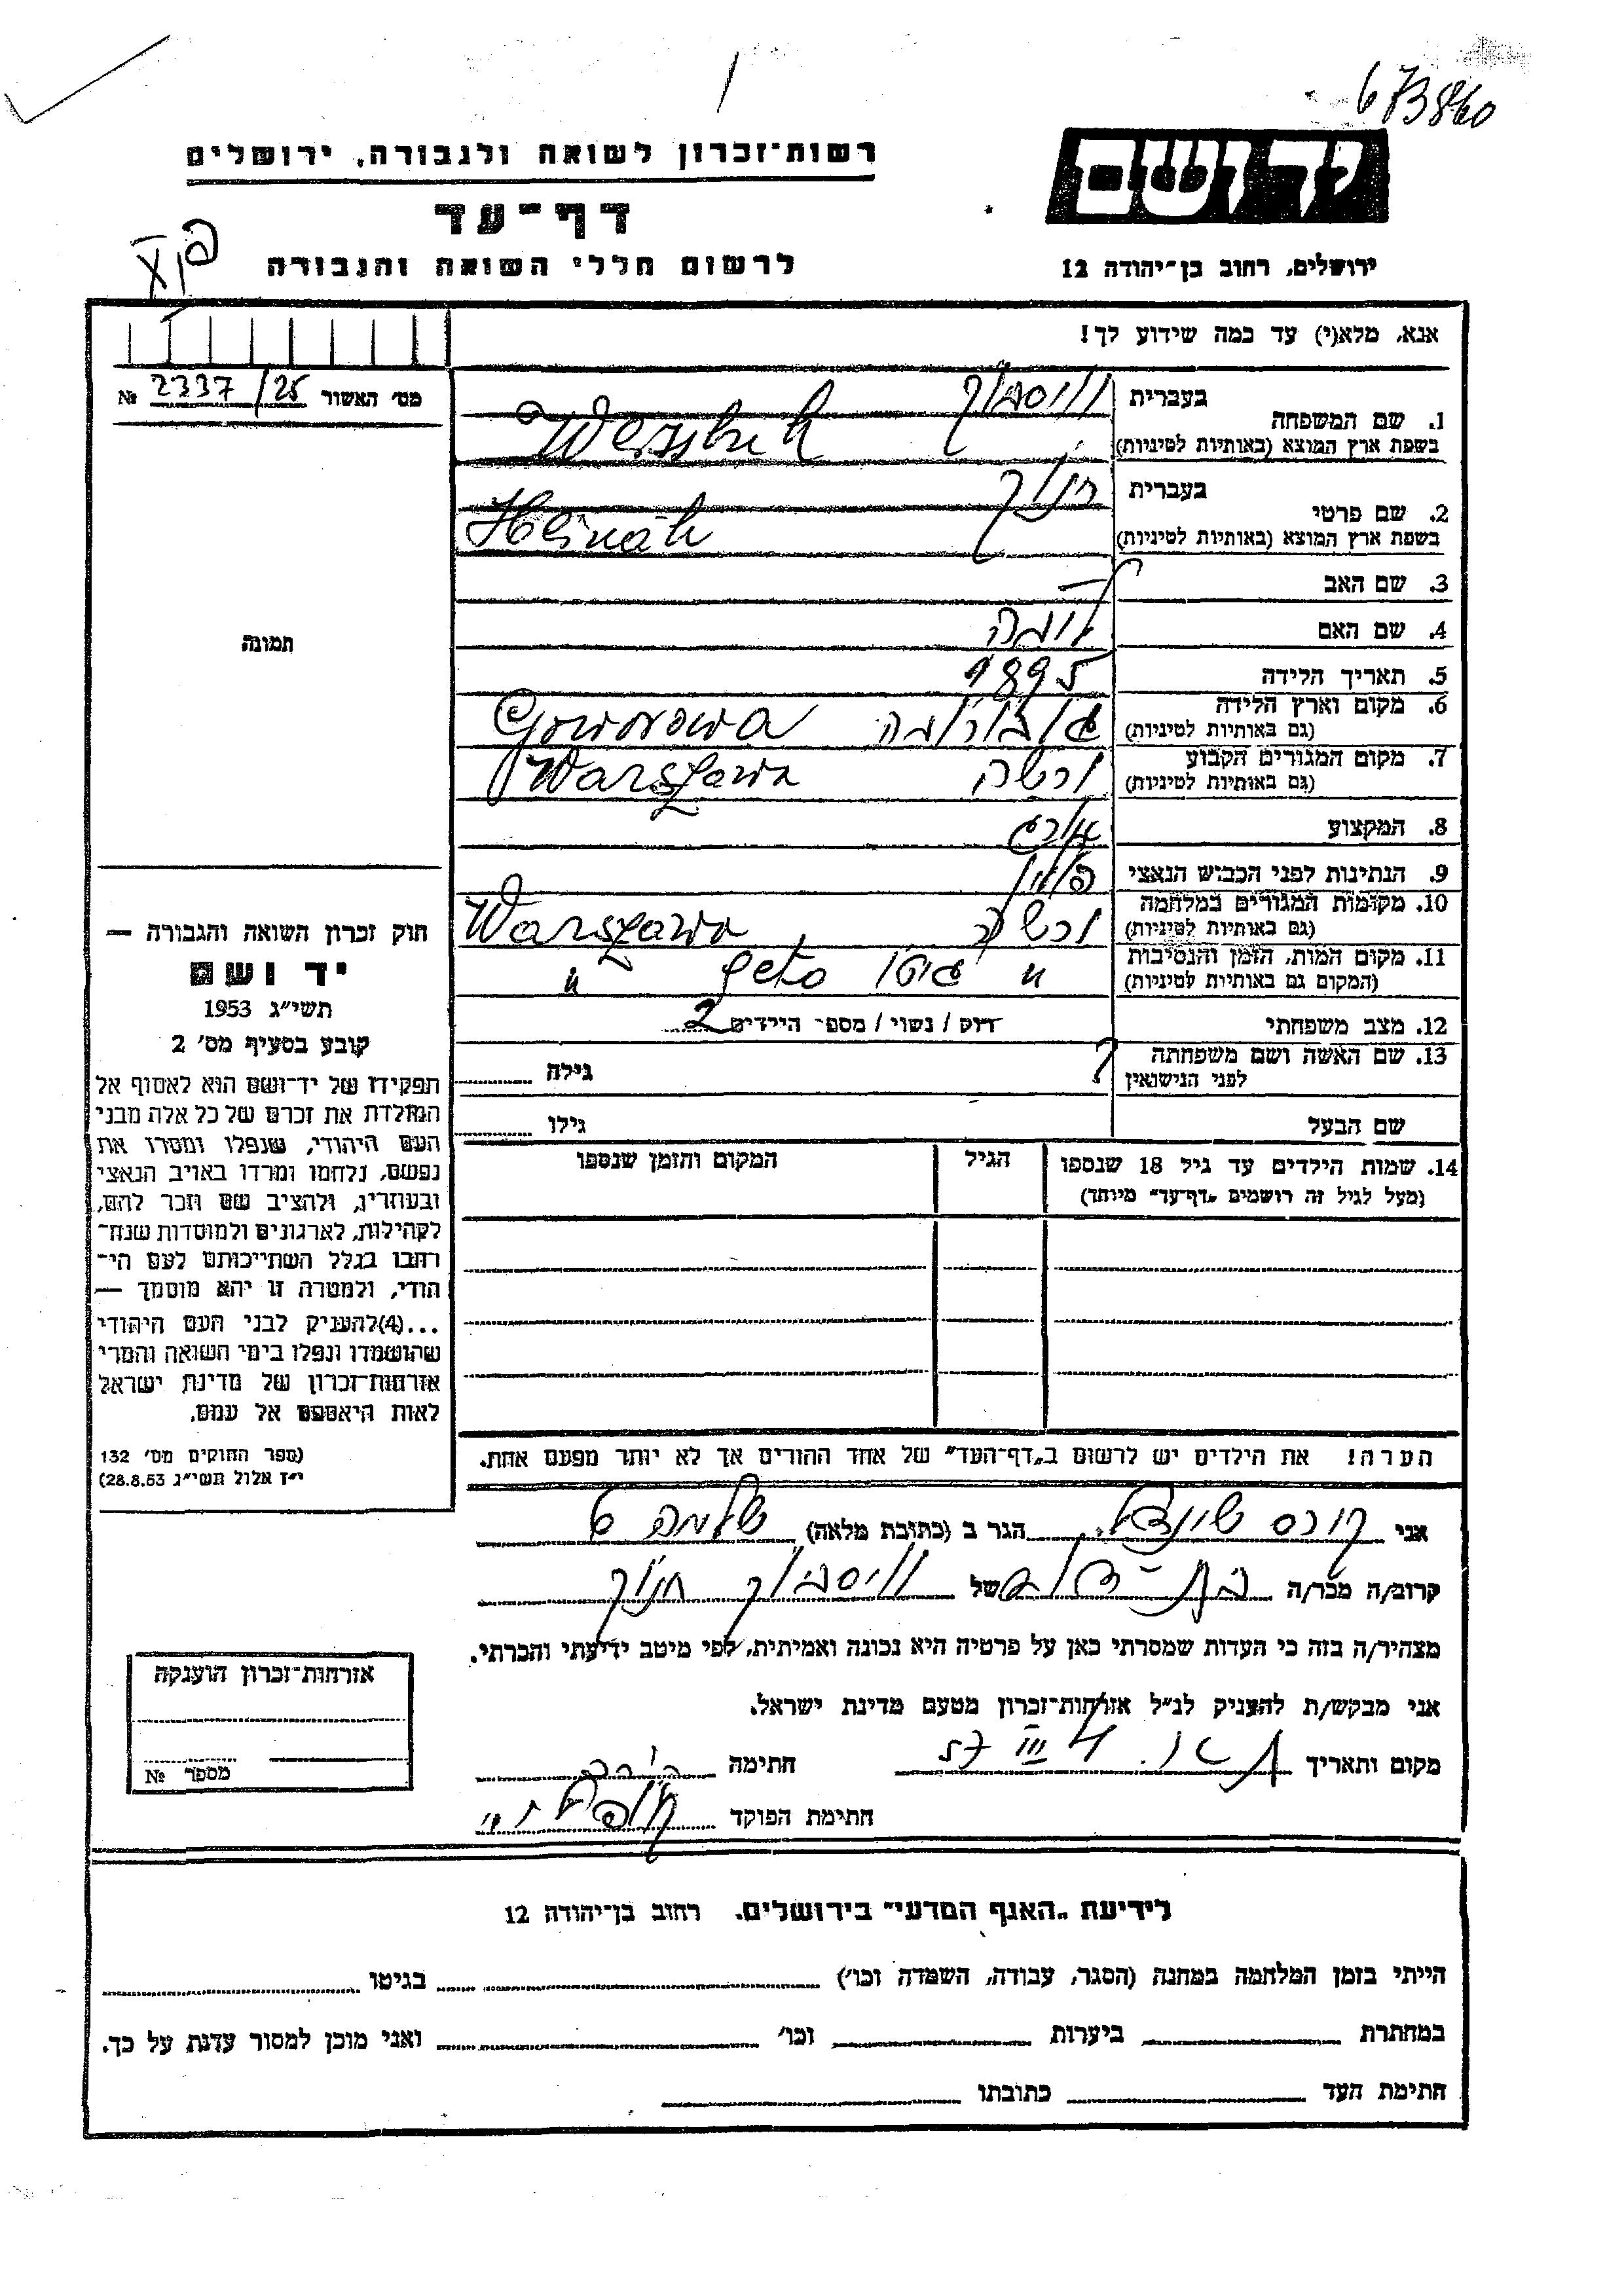 673860
רשות־זכרון לשואה ולגבורה, ירושלים
יד ושם
דף־עד
לרשום חללי השואה והגבורה
ירושלים, רחוב בן־יהודה 12
אנא, מלא(י) עד כמה שידוע לך!
מס׳ האשור 2337/25 №
בעברית
1. שם המשפחה
בשפת ארץ המוצא (באותיות לטיניות)
בעברית חנוך
2. שם פרטי
בשפת ארץ המוצא (באותיות לטיניות)
3. שם האב
4. שם האם
תמונה
5. תאריך הלידה 1895
6. מקום וארץ הלידה Goworowa
(גם באותיות לטיניות)
7. מקום המגורים הקבוע ורשה Warszawa
(גם באותיות לטיניות)
8. המקצוע
9. הנתינות לפני הכביש הנאצי פולין
10. מקומות המגורים במלחמה ורשה Warszawa
(גם באותיות לטיניות)
11. מקום המות, הזמן והנסיבות " גיטו "
(המקום גם באותיות לטיניות)
12. מצב משפחתי רוק / נשוי / מספר הילדים 2
13. שם האשה ושם משפחתה ? גילה
לפני הנישואין
שם הבעל גילו
14. שמות הילדים עד גיל 18 שנספו הגיל המקום והזמן שנספו
(מעל לגיל זה רושמים „דף־עד" מיוחד)
חוק זכרון השואה והגבורה —
יד ושם
תשי״ג 1953
קובע בסעיף מס׳ 2
תפקידו של יד־ושם הוא לאסוף אל
המולדת את זכרם של כל אלה מבני
העם היהודי, שנפלו ומסרו את
נפשם, נלחמו ומרדו באויב הנאצי
ובעוזריו, ולהציב שם וזכר להם,
לקהילות, לארגונים ולמוסדות שנח־
רבו בגלל השתייכותם לעם הי־
הודי, ולמטרה זו יהא מוסמך —
...(4)להעניק לבני העם היהודי
שהושמדו ונפלו בימי השואה והמרי
אזרחות־זכרון של מדינת ישראל
לאות היאספם אל עמם.
(ספר החוקים מס׳ 132
י״ז אלול תשי״ג 28.8.53)
הערה! את הילדים יש לרשום ב„דף־העד" של אחד ההורים אך לא יותר מפעם אחת.
אני הגר ב (כתובת מלאה) שלמה 6
קרוב/ה מכר/ה של חנוך
מצהיר/ה בזה כי העדות שמסרתי כאן על פרטיה היא נכונה ואמיתית, לפי מיטב ידיעתי והכרתי.
אני מבקש/ת להעניק לנ״ל אזרחות־זכרון מטעם מדינת ישראל.
מקום ותאריך 4 III 57 חתימה
חתימת הפוקד
אזרחות־זכרון הוענקה
מספר №
לידיעת „האגף המדעי" בירושלים. רחוב בן־יהודה 12
הייתי בזמן המלחמה במחנה (הסגר, עבודה, השמדה וכו׳) בגיטו
במחתרת ביערות וכו׳ ואני מוכן למסור עדות על כך.
חתימת העד כתובתו